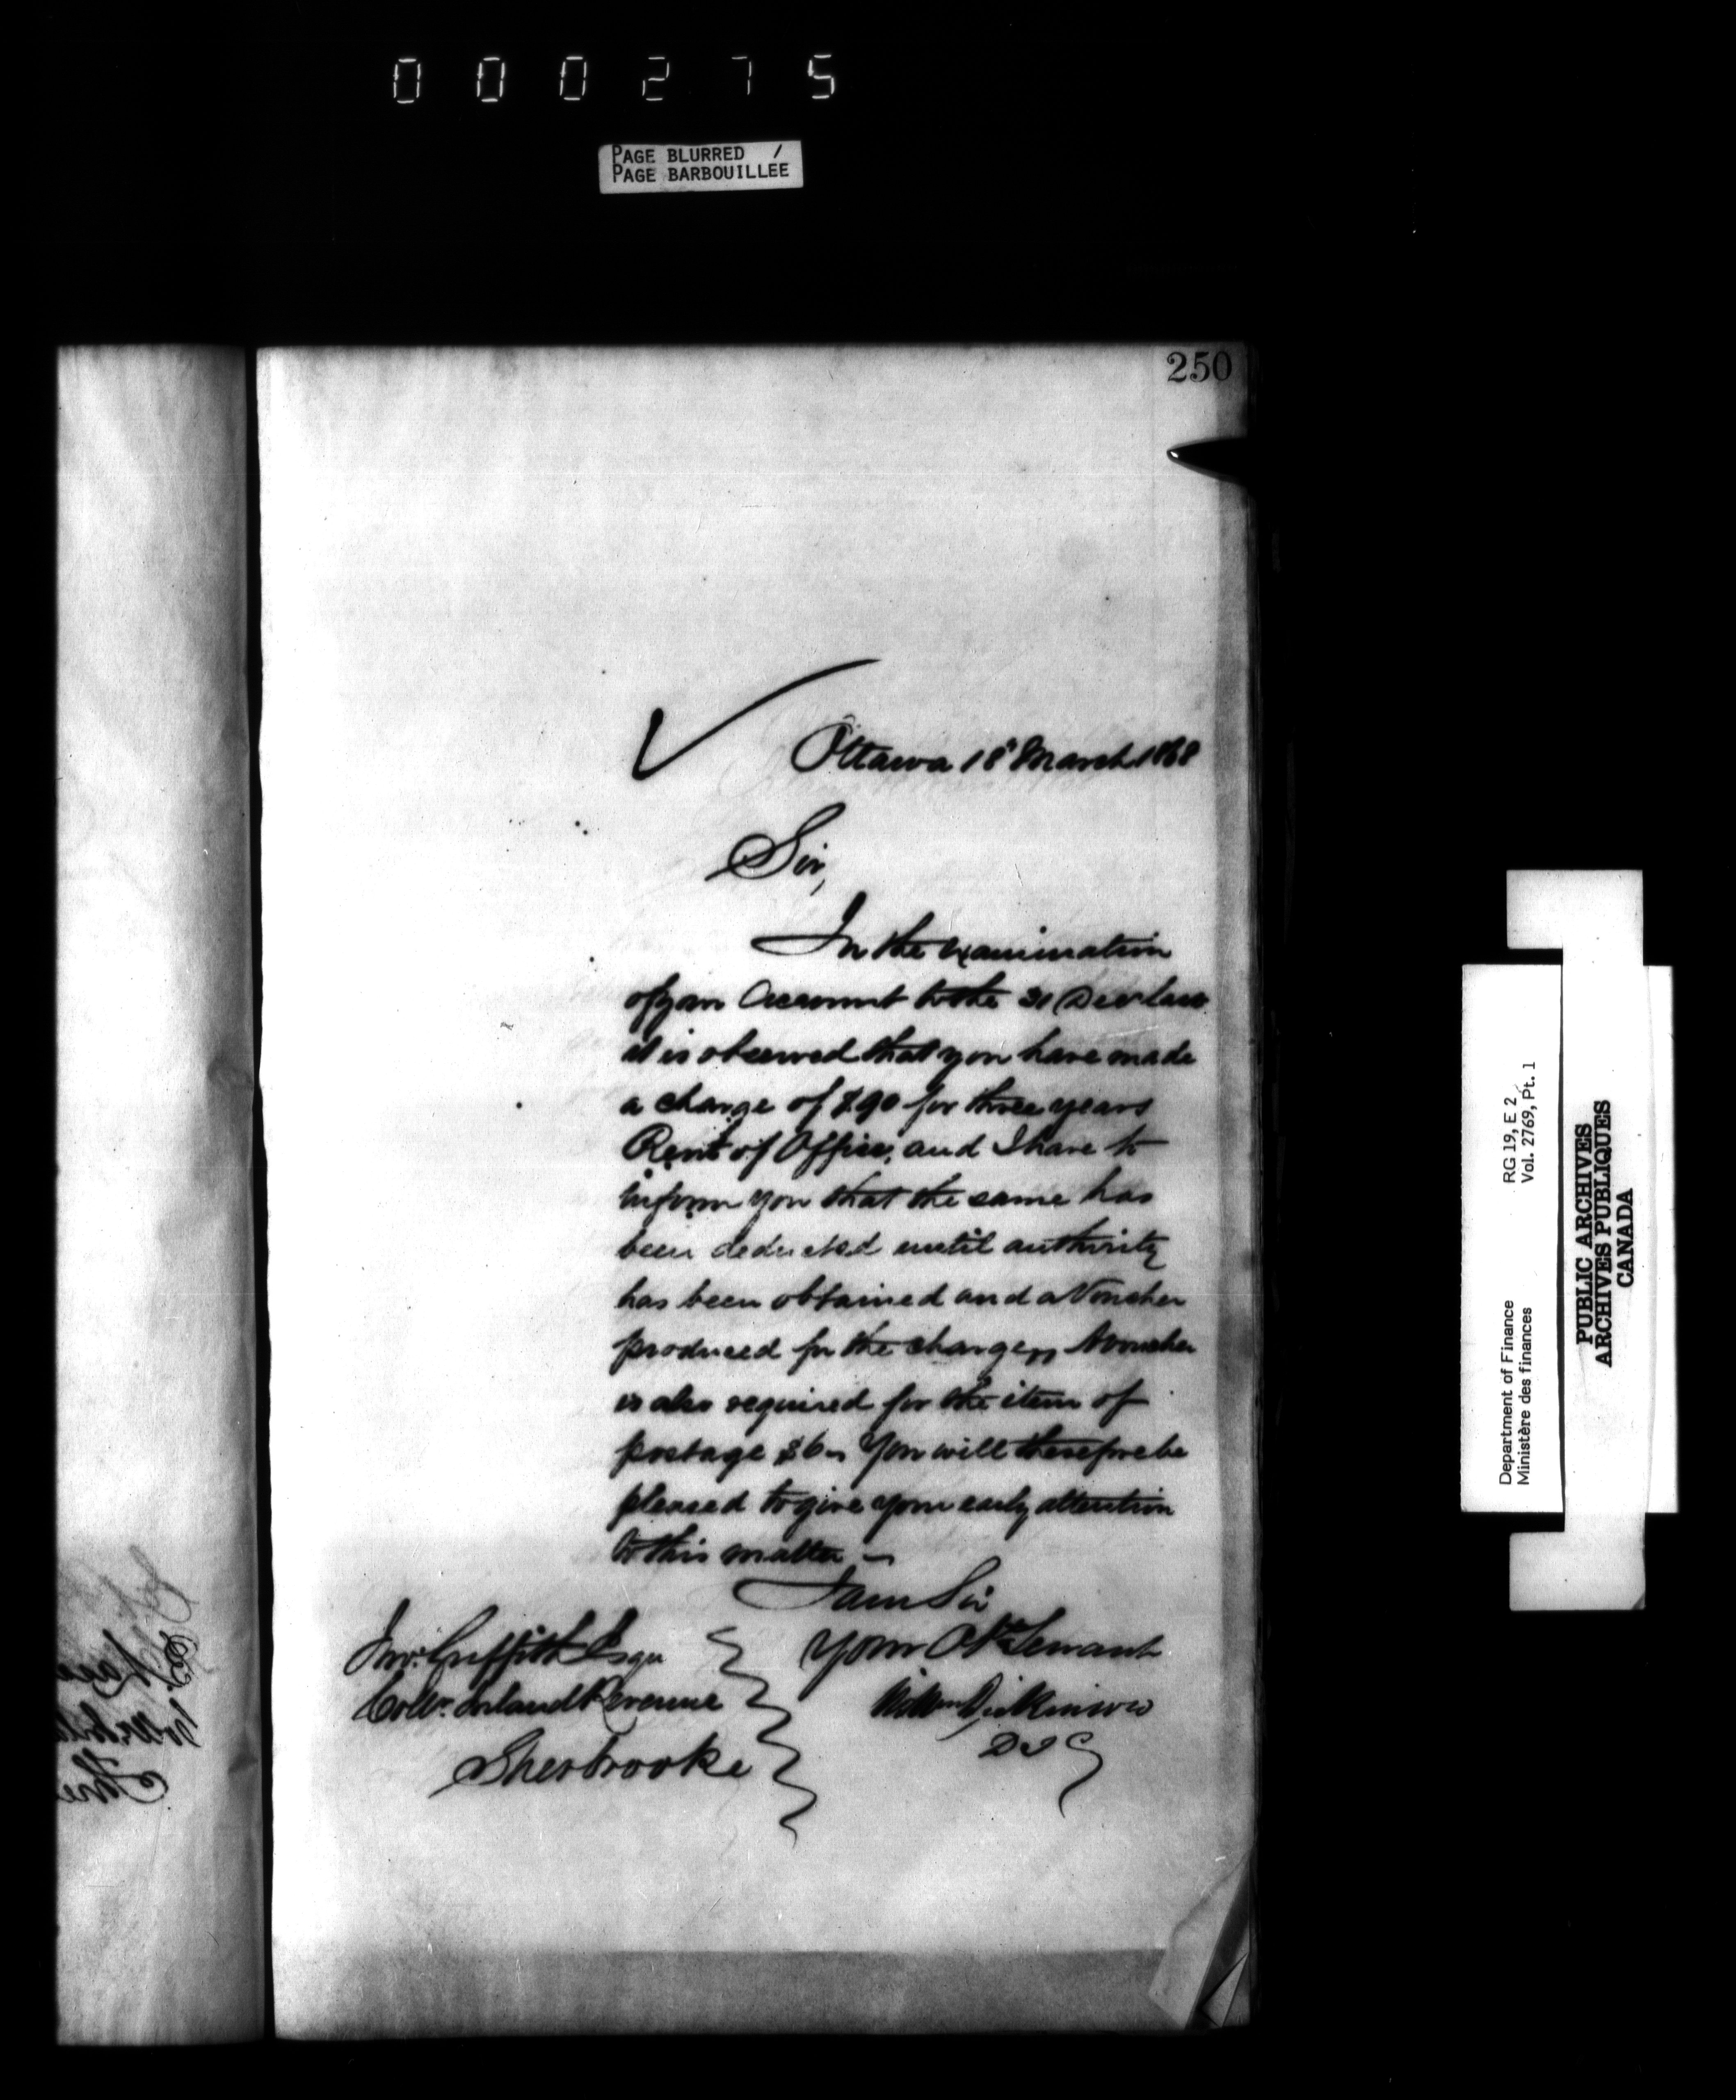 000275
PAGE BLURRED /
PAGE BARBOUILLEE
250
Ottawa 18 March 1868
Sir,
In the examination
of your Account to the 31 Decr last
it is observed that you have made
a charge of $90 for three years
Rent of Office, and I have to
inform you that the same has
been deducted until authority
has been obtained and a Voucher
produced for the charge,, A voucher
is also required for the item of
postage $6 - You will therefore be
pleased to give your early attention
to this matter -
I am Sir
Your Obt Servant
Wm Dickinson
D I G
Jno. Griffith Esqr
Collr. Inland Revenue
Sherbrooke
Department of Finance RG 19, E 2,
Ministère des finances Vol. 2769, Pt. 1
PUBLIC ARCHIVES
ARCHIVES PUBLIQUES
CANADA